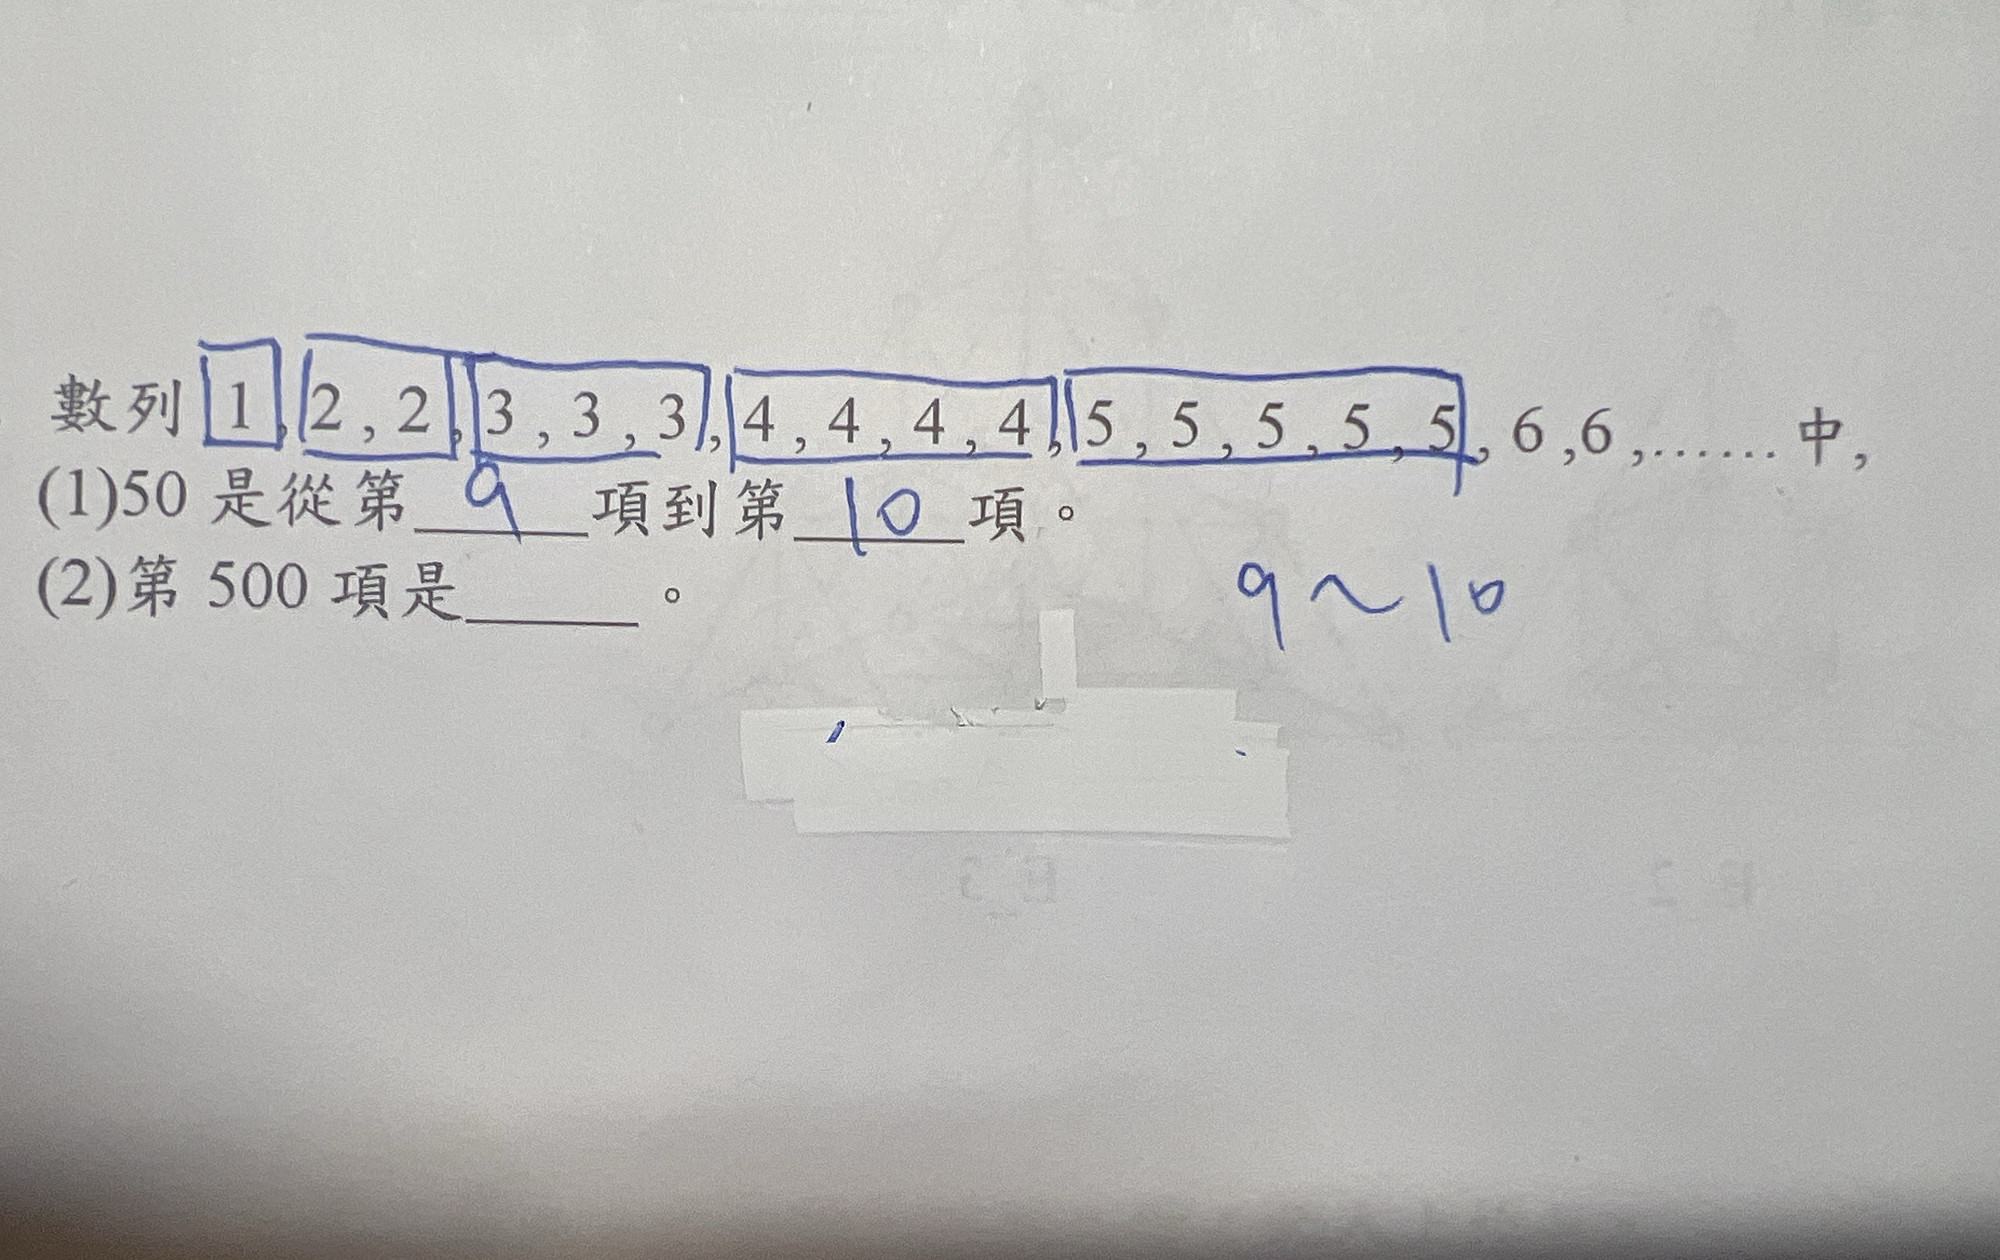 數列 1, 2, 2, 3, 3, 3, 4, 4, 4, 4, 5, 5, 5, 5, 5, 6,6,……中,
(1)50 是從第 9 項到第 10 項。
(2)第 500 項是______。
9~10